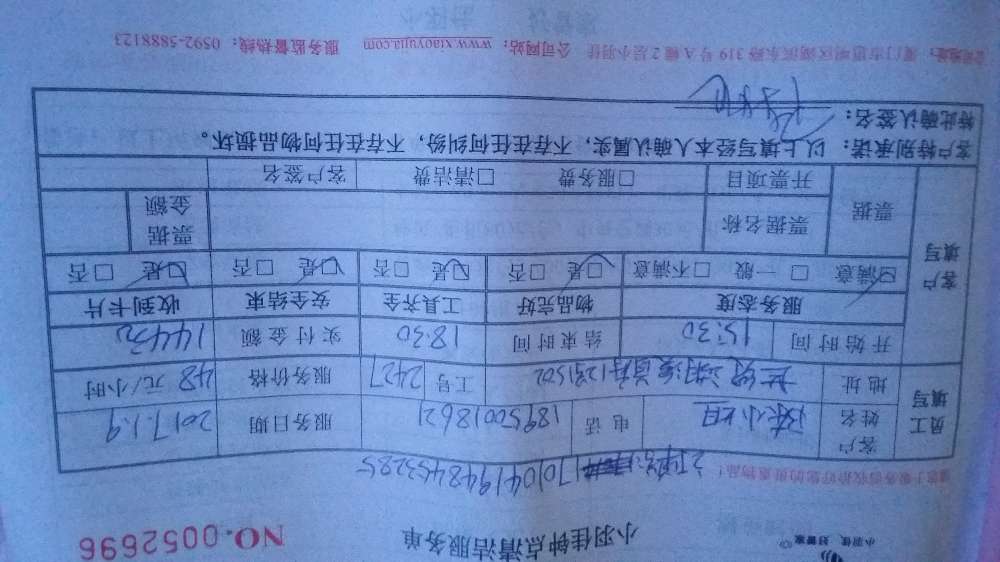 小羽佳，好管家
小羽佳钟点清洁服务单
NO.0052696
170104194845328S
员工填写
客户姓名 陈小姐 电话 18950018621 服务日期 2017.1.9
地址 工号 2427 服务价格 48元/小时
开始时间 15:30 结束时间 18:30 实付金额 144元
客户填写
服务态度 物品完好 工具齐全 安全结束 收到卡片
☑满意 □一般 □不满意 ☑是 □否 ☑是 □否 ☑是 □否 ☑是 □否
票据 票据名称 票据金额
开票项目 □服务费 □清洁费 客户签名
客户特别承诺：以上填写经本人确认属实，不存在任何纠纷，不存在任何物品损坏。
特此确认签名：
公司地址：厦门市思明区湖滨东路319号A幢2层小羽佳 公司网站：www.xiaoyujia.com 服务监督热线：0592-5888123